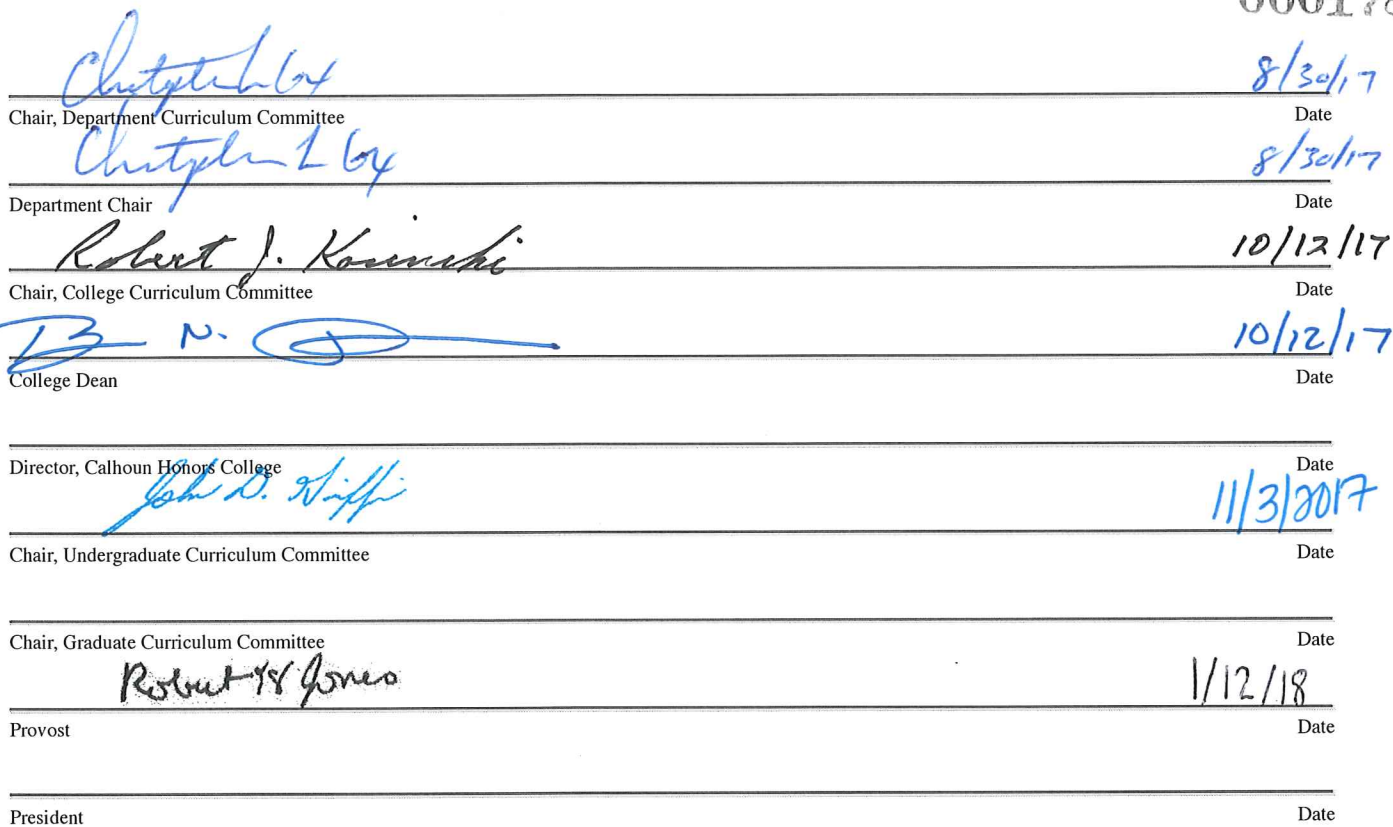 8/30/17
Chair, Department Curriculum Committee Date
8/30/17
Department Chair Date
Robert J. Kosinski 10/12/17
Chair, College Curriculum Committee Date
N. 10/12/17
College Dean Date
Director, Calhoun Honors College Date
John D. Griffin 11/3/2017
Chair, Undergraduate Curriculum Committee Date
Chair, Graduate Curriculum Committee Date
Robert H Jones 1/12/18
Provost Date
President Date